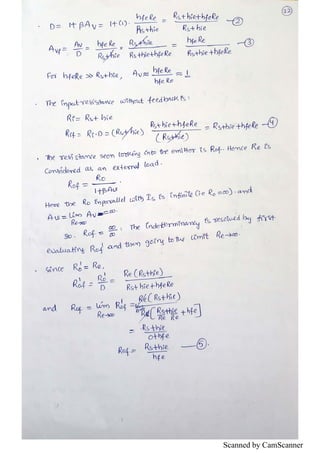 (22)
· D = 1+ βAv = 1+(1). hfeRe / Rs+hie = Rs+hie+hfeRe / Rs+hie —(2)
Avf = Av / D = hfeRe / Rs+hie × Rs+hie / Rs+hie+hfeRe = hfeRe / Rs+hie+hfeRe —(3)
For hfeRe >> Rs+hie, Av≈ hfeRe / hfeRe ≈ 1
· The input resistance without feedback is:
Ri = Rs+ hie
Rif = Ri·D = (Rs+hie) Rs+hie+hfeRe / (Rs+hie) = Rs+hie+hfeRe —(4)
· The resistance seen looking into the emitter is Rof. Hence Re is
considered as an external load.
Rof = Ro / 1+βAv
Here the Ro in parallel with Is is infinite (i.e Ro = ∞). and
Av = Lim Re→∞ Av = ∞.
so. Rof = ∞ / ∞. The indeterminancy is resolved by first
evaluating Rof' and then going to the limit Re→∞.
· Since Ro' = Re,
Rof' = Ro' / D = Re(Rs+hie) / Rs+hie+hfeRe
and Rof = Lim Re→∞ Rof' = Re(Rs+hie) / Re[Rs+hie / Re + hfe]
= Rs+hie / 0+hfe
Rof = Rs+hie / hfe —(5).
Scanned by CamScanner